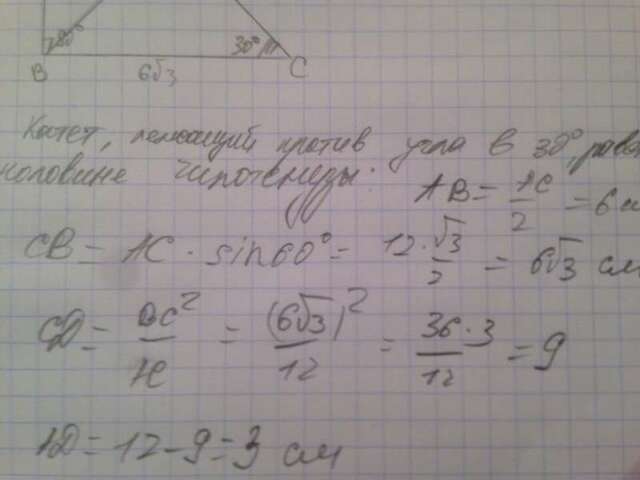 30°
B 6√3 C
Катет, лежащий против угла в 30°, равен
половине гипотенузы.
AB = AC/2 = 6
CB = AC · sin60° = 12·√3/2 = 6√3 см
CD = BC²/AC = (6√3)²/12 = 36·3/12 = 9
AD = 12 - 9 = 3 см